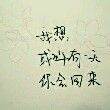 我想
或许有一天
你会回来